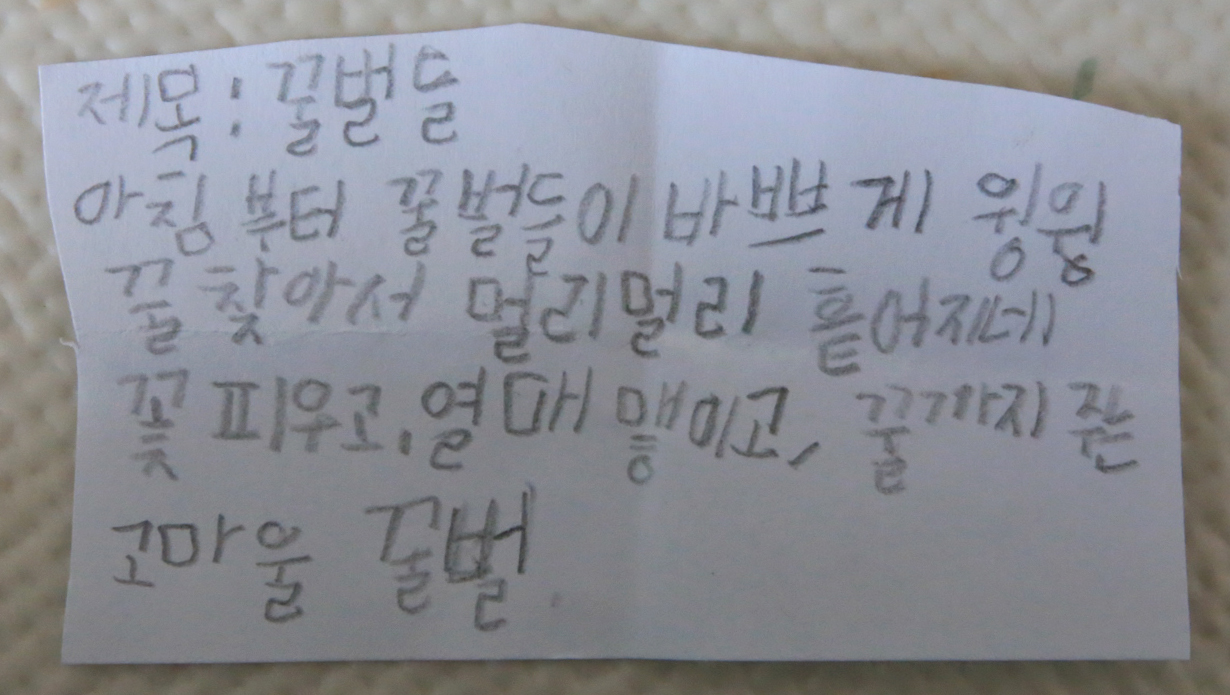 제목: 꿀벌들
아침부터 꿀벌들이 바쁘게 윙윙
꿀 찾아서 멀리멀리 흩어지네
꽃 피우고, 열매 맺이고, 꿀까지 준
고마울 꿀벌